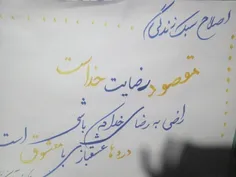 اصلاح سبک زندگی
مقصود رضایت خداست
راضی به رضای خدا که باشی
دردها عشقبازی با معشوق است